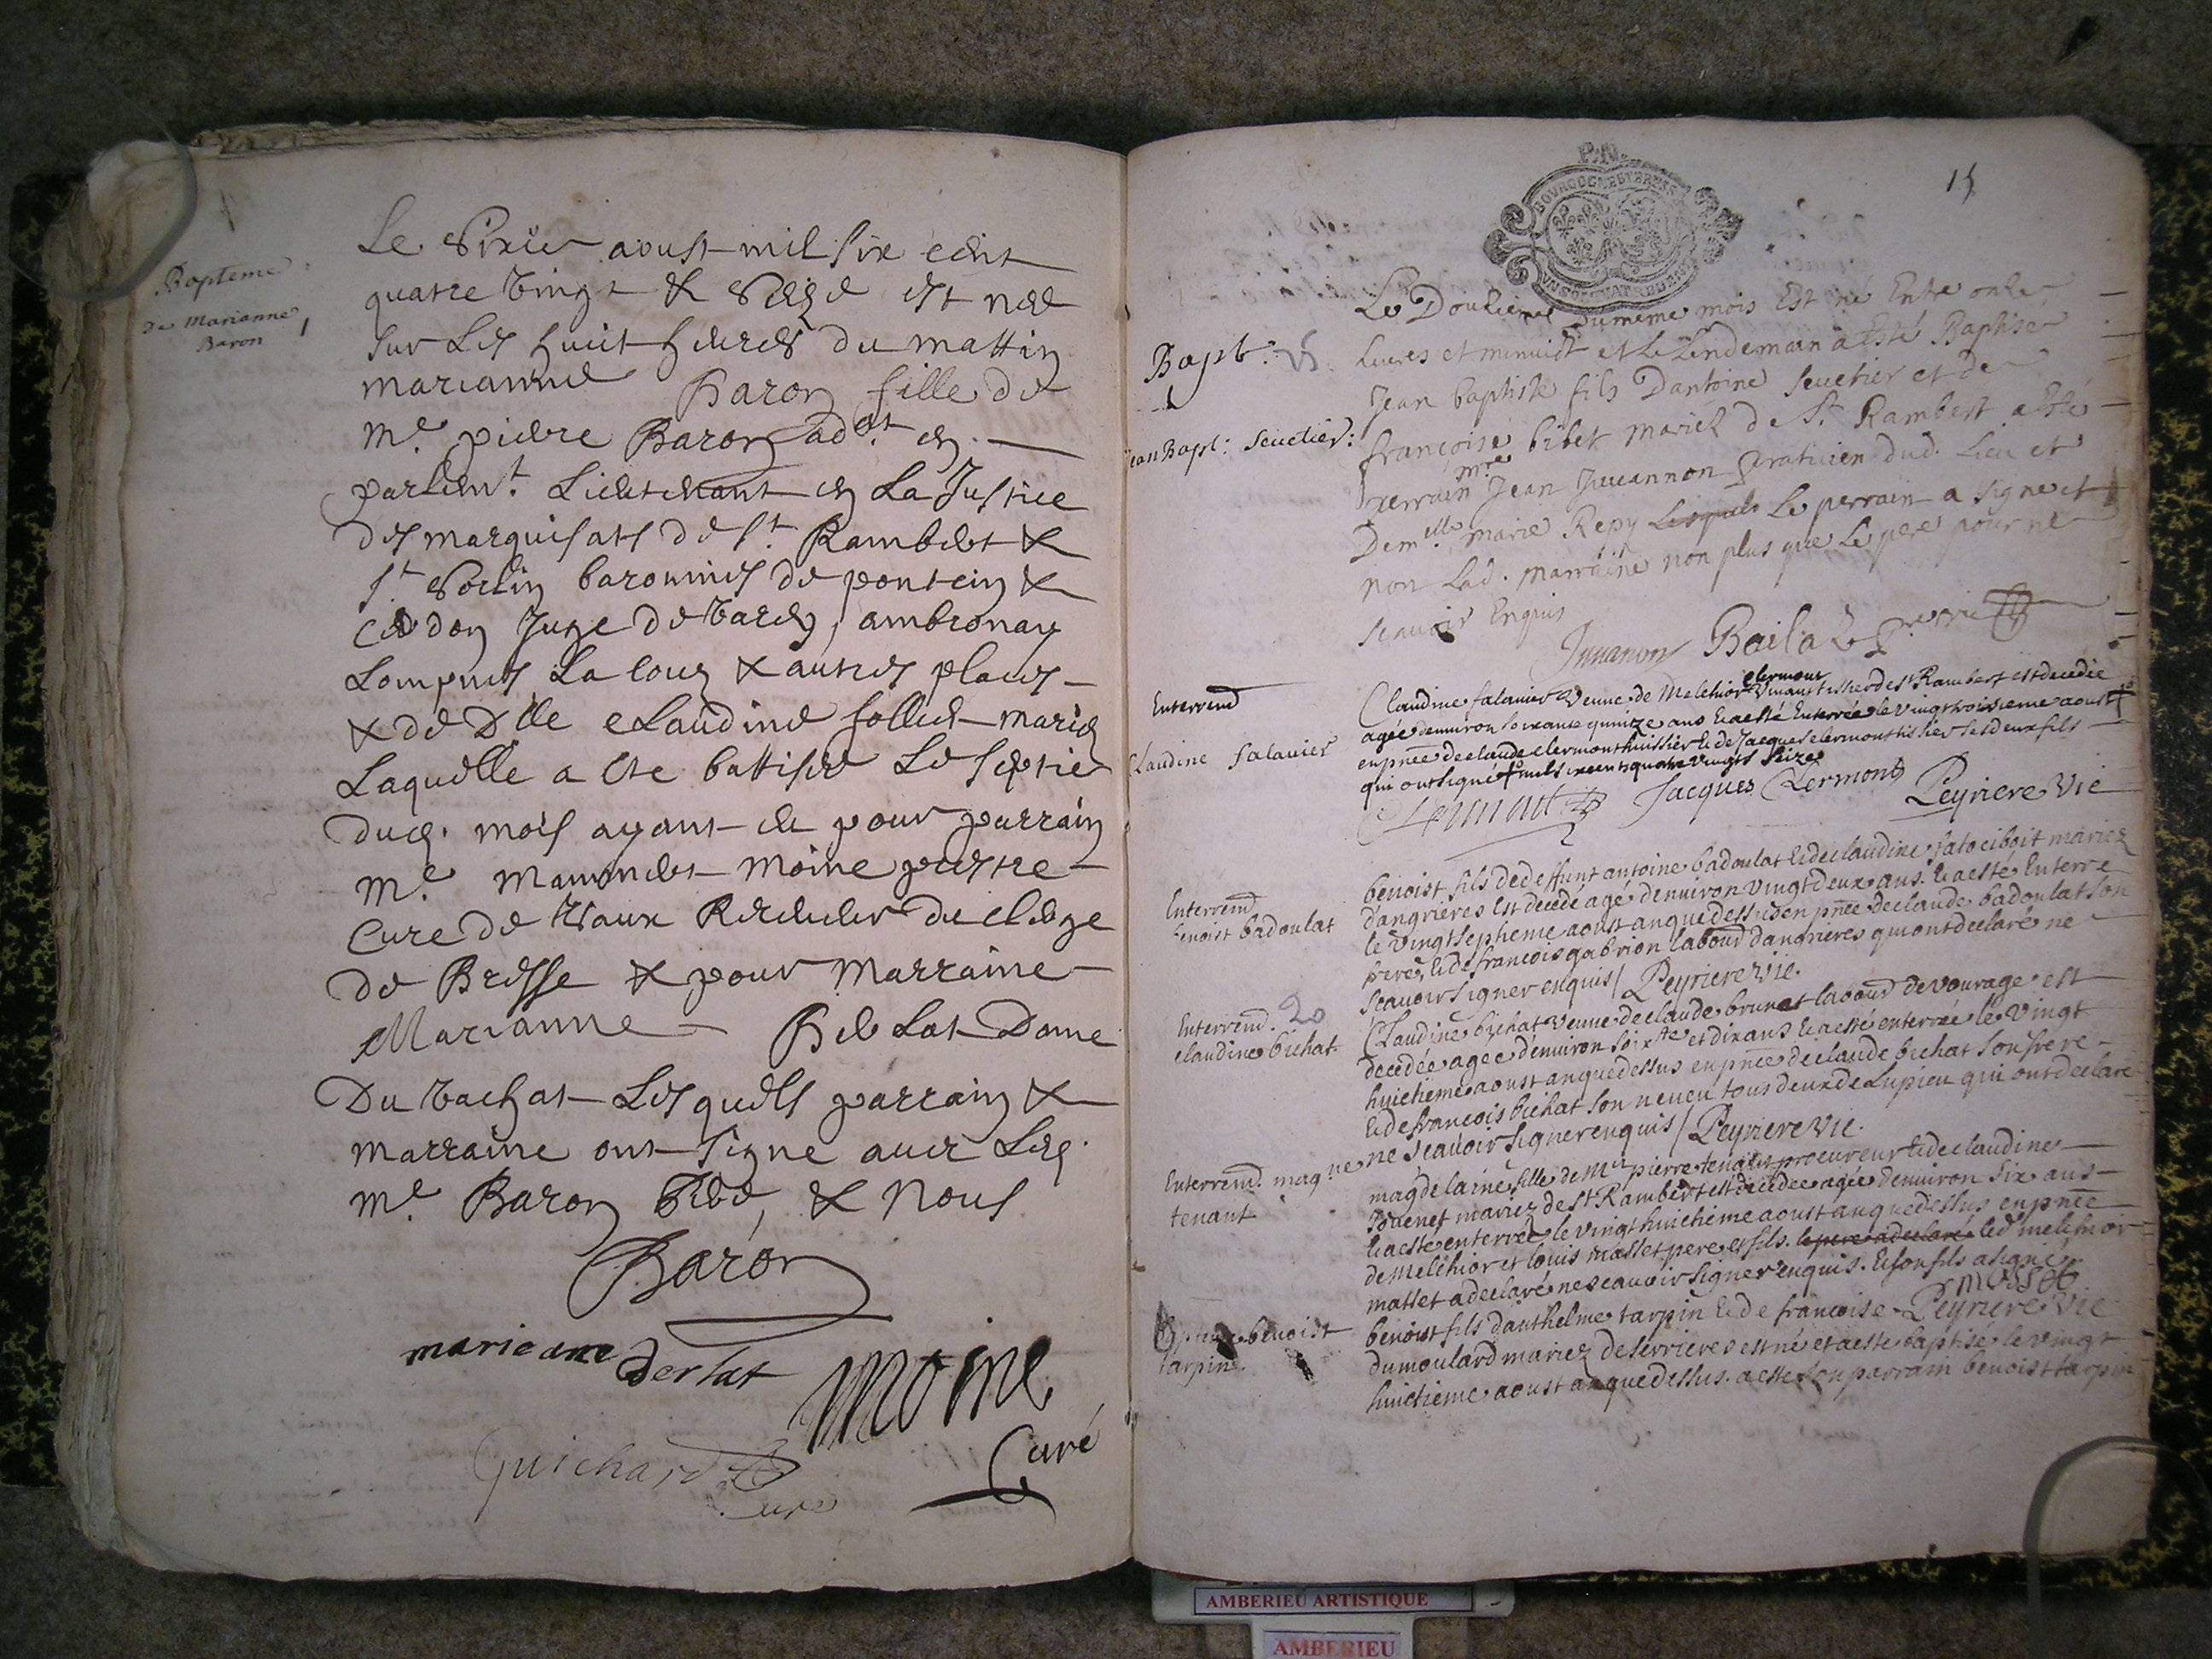 Bapteme
de Marianne
Baron
Le Sixie aoust mil six cent
quatre vingt & Seize est nee
sur Les huict heures du mattin
marianne Baron fille de
Me. pierre Baron adt. en
parlemt. Lieutenant en La Justice
des marquisats de St. Rambert &
St. Sorlin baronnies de poncein &
Cerdon Juge de Varey, ambronay
Lompnes La Coux & autres places
& de Dlle claudine follied maries
Laquelle a este battisée Le septie
dud. mois ayant eu pour parrain
Me. Moine prestre
Curé de Vaux Receveur du clerge
de Bresse & pour Marraine
Marianne Dame
Du Vachat Lesquels parrain &
marraine ont signe avec Led.
Me. Baron & Nous
Baron
marieane Moine
Curé
Guichard
Cure
15
P.N.
BOURGOGNE ET BRESSE
Le Douzieme du meme mois Est né Entre onze
heures et minuict et Le Lendemain a Esté Baptisé
Jean baptiste fils Dantoine Seuetier et de
francoise bibet mariez de St. Rambert a Esté
perrain mre Jean Juuannon praticien dud. Lieu et
Demlle marie Repy Lesquels Le perrain a signé et
non Lad. marraine non plus que Le pere pour ne
scauoir Enquis
Juuanon Bailat
Bapt:
Jean Bapt: Seuetier:
Enterremd
Claudine falauier
Claudine falauier veuue de Melchior clermont viuant tissier de st Rambert est decedée
agée denuiron soixante quinize ans et a esté Enterrée le vingt troisieme aoust
en pnce de claude clermont huissier et de Jacques clermont tissier ses deux fils
qui ont signé mil six cent quatre vingts seize
Clermont Jacques Clermont Peyriere vic
Enterremd
benoist badoulat
benoist fils de deffunt antoine badoulat et de claudine mariez
dangrieres Est decedé agé denuiron vingt deux ans. et a esté Enterre
le vingt septieme aoust an que dessus en pnce de claude badoulat son
frere, et de francois gabrion labourd dangrieres qui ont declaré ne
scauoir signer enquis / Peyriere vic.
Enterremd. 20
claudine bichat
Claudine bichat veuue de claude brunet labourd de vourage est
decedée agee denuiron soixte et dix ans et a esté enterrée le vingt
huictieme aoust an que dessus en pnce de claude bichat son frere
et de francois bichat son neueu tous deux de Lupieu qui ont declaré
ne scauoir signer enquis / Peyriere vic.
Enterremd. magne
tenant
magdelaine fille de Mre pierre tenant procureur et de claudine
mariez de st Rambert est decedee agée denuiron six ans
et a esté enterrée le vingt huictieme aoust an que dessus en pnce
de melchior et louis masset pere et fils. le pere a declaré led melchior
masset a declaré ne scauoir signer enquis. et son fils a signé
masset
Peyriere vic
benoist
tarpin.
benoist fils danthelme tarpin et de francoise
dumoulard mariez de serrieres est né et a este baptisé le vingt
huictieme aoust an que dessus. a este son parrain benoist tarpin
AMBERIEU ARTISTIQUE
AMBERIEU